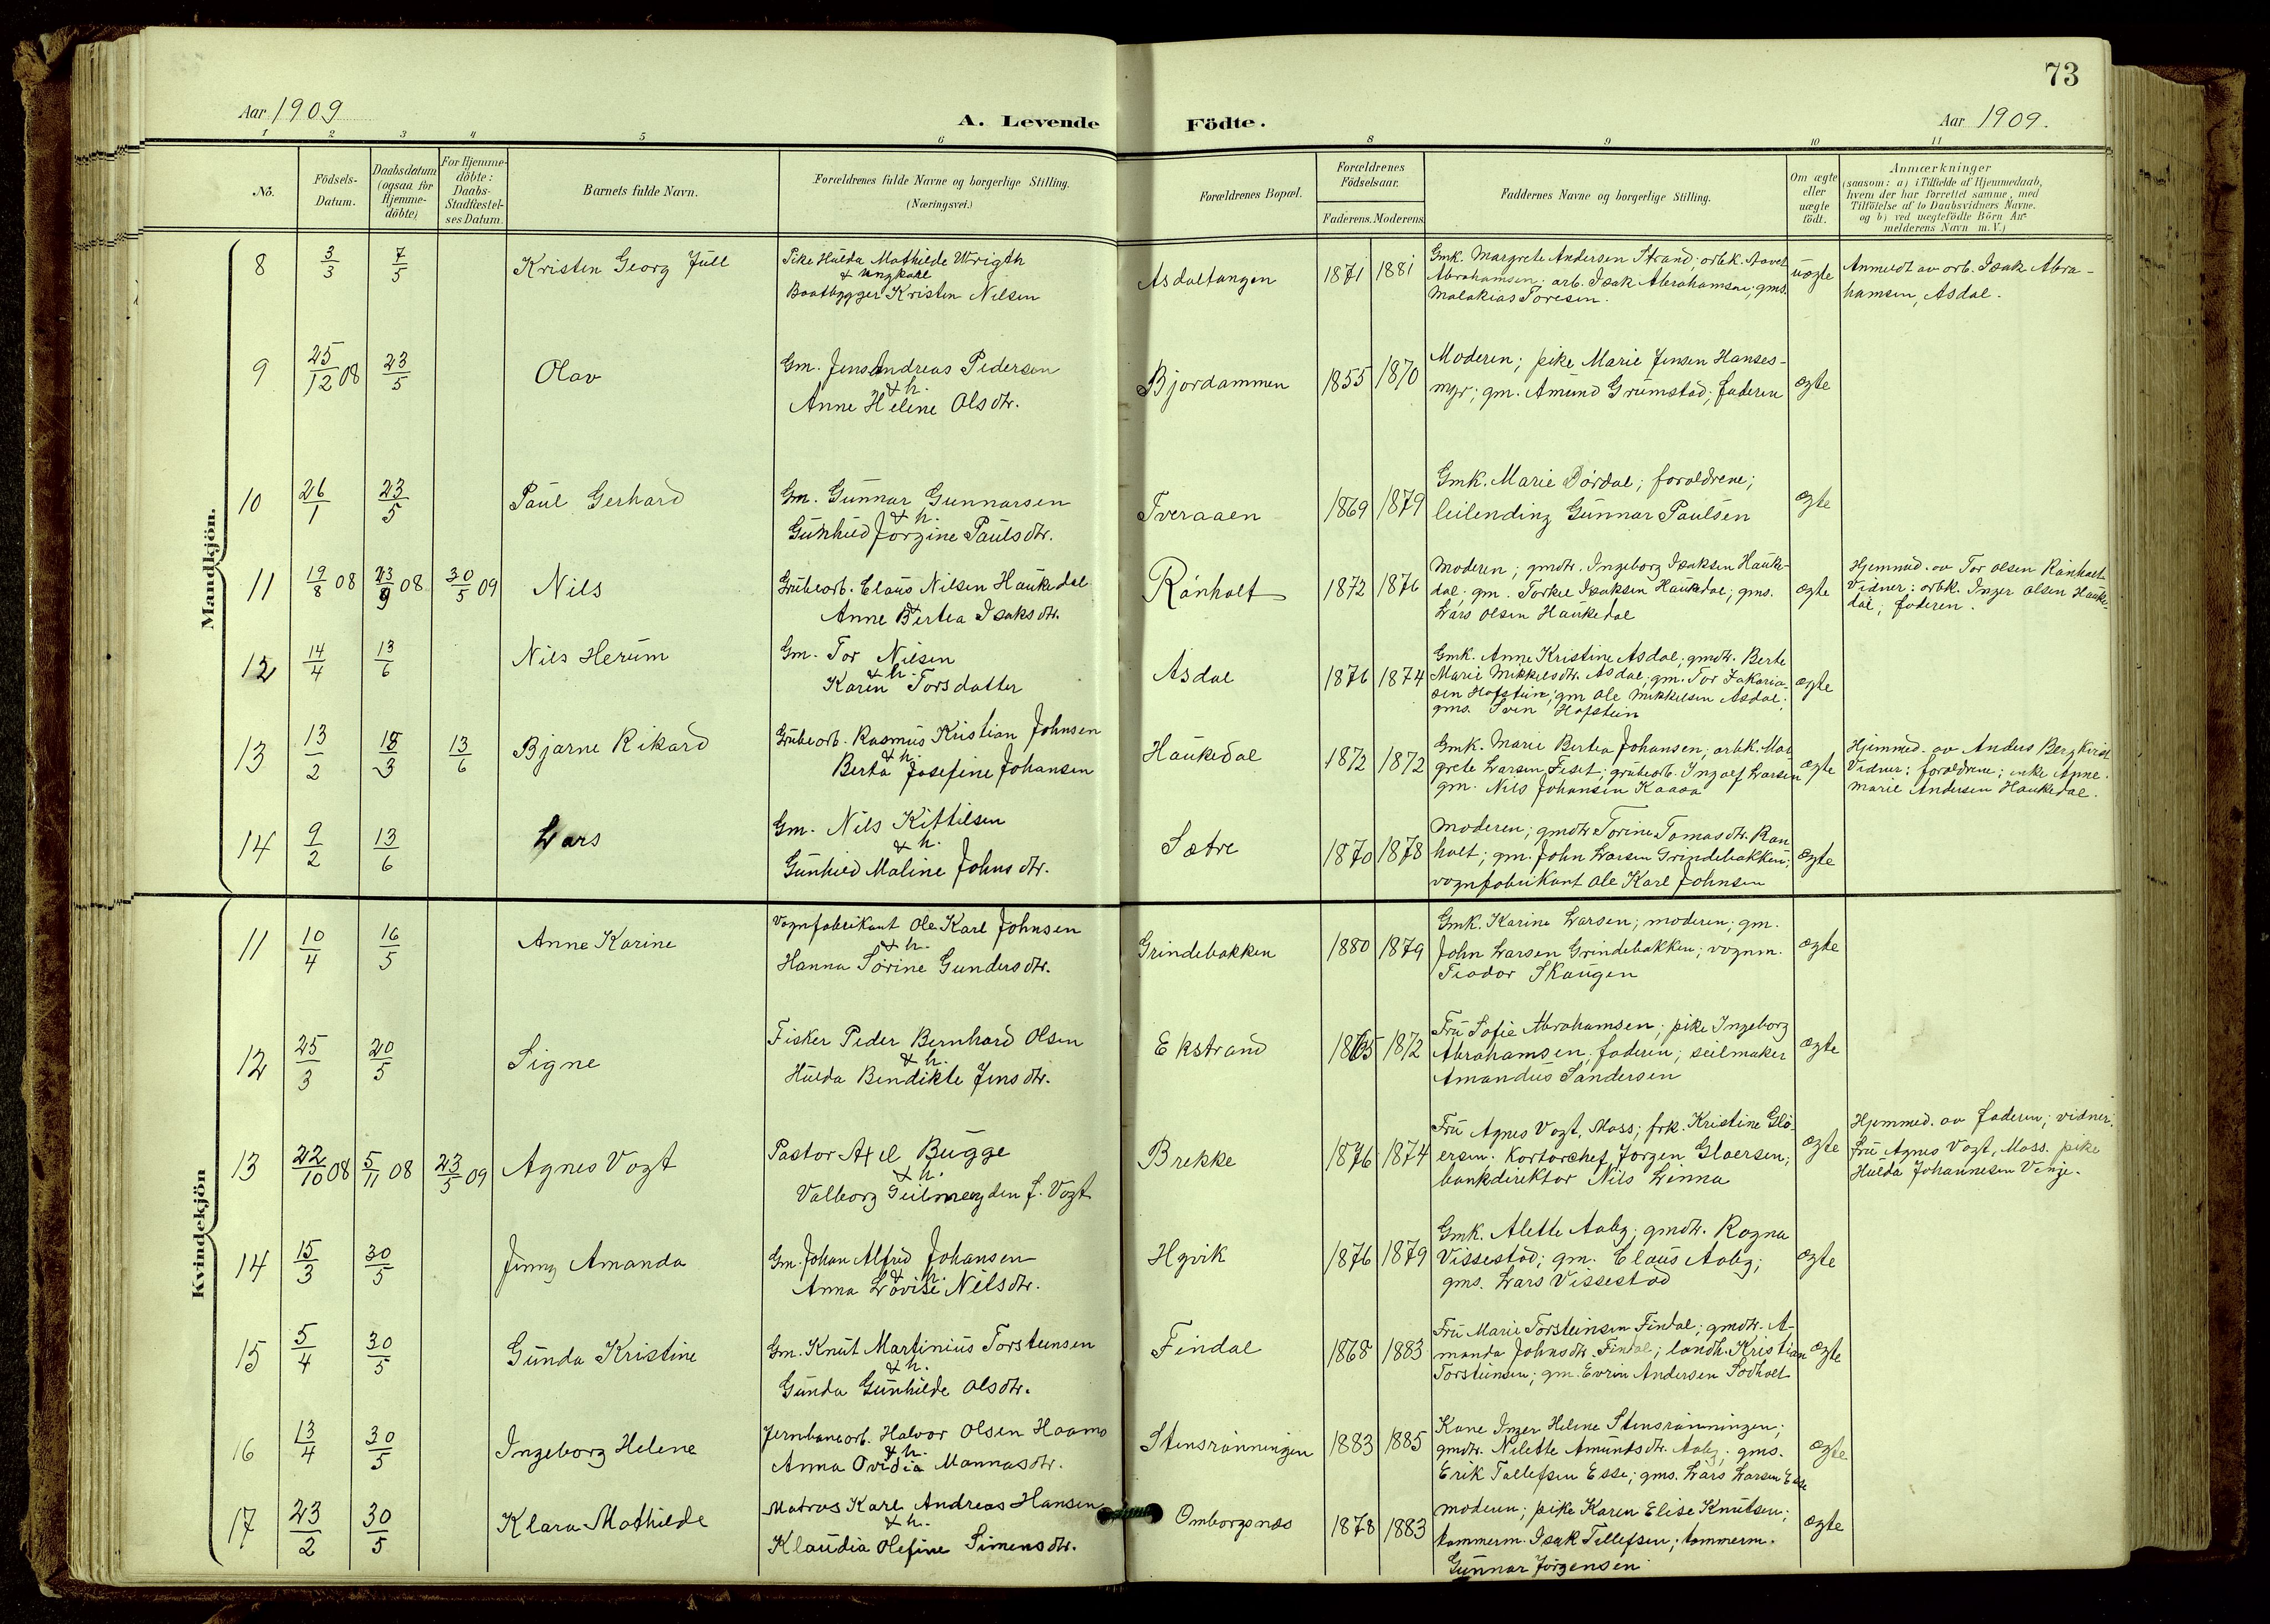 73
Aar 1909
A. Levende Födte.
Aar 1909.
1 2 3 4 5 6 8 9 10 11
No.
Födsels-Datum.
Daabsdatum (ogsaa for Hjemme-döbte)
For Hjemme-döbte: Daabs-Stadfæstel-ses Datum.
Barnets fulde Navn.
Forældrenes fulde Navne og borgerlige Stilling.
(Næringsvei.)
Forældrenes Bopæl.
Forældrenes Födselsaar.
Faderens. Moderens.
Faddernes Navne og borgerlige Stilling.
Om ægte eller uægte födt.
Anmærkninger
(saasom: a) i Tilfælde af Hjemmedaab,
hvem der har forrettet samme, med
Tilföielse af to Daabsvidners Navne.
og b) ved uægtefödte Börn An-
melderens Navn m. V.)
Mandkjön.
8 3/3 7/5 Kristen Georg Jull
Pike Hulda Mathilde Wrigth
& ungkarl
Baatbygger Kristen Nilsen
Asdaltangen 1871 1881
Gmk. Margrete Andersen Strand; arbk.
Abrahamsen; arb. Isak Abrahamsen; gms.
Malakias Toresen.
uægte
Anmeldt av arb. Isak Abra-
hamsen, Asdal.
9 25/12 08 23/5 Olav
Gm. Jens Andreas Pedersen
& h.
Anne Heline Olsdtr.
Bjordammen 1855 1870
Moderen; pike Marie Jensen Hanses-
myr; gm. Amund Grumstad; faderen
ægte
10 26/1 23/5 Paul Gerhard
Gm. Gunnar Gunnarsen
& h.
Gunhild Jørgine Paulsdtr.
Tveraaen 1869 1879
Gmk. Marie Dørdal; forældrene;
leilending Gunnar Paulsen
ægte
11 19/8 08 23/9 08 30/5 09 Nils
Grubearb. Claus Nilsen Haukedal
&
Anne Bertea Isaksdtr.
Rånholt 1872 1876
Moderen; gmdtr. Ingeborg Isaksen Hauke-
dal; gm. Torkel Isaksen Haukedal; gms.
Lars Olsen Haukedal
ægte
Hjemmed. av Tor Olsen Rånholt
Vidner: arbk. Inger Olsen Hauke-
dal; faderen.
12 14/4 13/6 Nils Herum
Gm. Tor Nilsen
& h.
Karen Torsdatter
Asdal 1876 1874
Gmk. Anne Kristine Asdal; gmdtr. Berte
Marie Mikkelsdtr. Asdal; gm. Tor Zakaria-
sen Hafstein; gm Ole Mikkelsen Asdal;
gms. Sven Hafstein
ægte
13 13/2 18/3 13/6 Bjarne Rikard
Grubearb. Rasmus Kristian Johnsen
& h.
Berta Josefine Johansen
Haukedal 1872 1872
Gmk. Marie Bertea Johansen; arbk. Mar
grete Larsen Feset; grubearb. Ingolf Larsen
gm. Nils Johansen Kaasa
ægte
Hjemmed. av Anders Berg
Vidner: forældrene; enke Anne
marie Andersen Haukedal.
14 9/2 13/6 Lars
Gm. Nils Kittilsen
& h.
Gunhild Maline Johnsdtr.
Sætre 1870 1878
Moderen; gmdtr Torine Tomasdtr. Ran
holt; gm. John Larsen Grindebakken;
vognfabrikant Ole Karl Johnsen
ægte
Kvindekjön
11 10/4 16/5 Anne Karine
Vognfabrikant Ole Karl Johnsen
& h.
Hanna Sørine Gundersdtr.
Grindebakken 1880 1879
Gmk. Karine Larsen; moderen; gm.
John Larsen Grindebakken; vognm.
Teodor Skaugen
ægte
12 25/3 20/5 Signe
Fisker Peder Bernhard Olsen
& h.
Hulda Bendikte Jensdtr.
Ekstrand 1865 1872
Fru Sofie Abrahamsen; pike Ingeborg
Abrahamsen; faderen; seilmaker
Amandus Sandersen
ægte
13 22/10 08 5/11 08 23/5 09 Agnes Vogt
Pastor Axel Bugge
& h.
Valborg Geilmeyden f. Vogt
Brekke 1876 1874
Fru Agnes Vogt, Moss; frk. Kristine Glø-
ersen. Kontorchef Jørgen Gløersen;
bankdirektør Nils Linna
ægte
Hjemmed. av faderen; vidner:
fru Agnes Vogt, Moss. pike
Hulda Johannesen Venje.
14 15/3 30/5 Jenny Amanda
Gm. Johan Alfred Johansen
& h.
Anna Lovise Nilsdtr.
Høvik 1876 1879
Gmk. Alette Aaby; gmdtr. Ragna
Vissestad; gm. Claus Aaby;
gms. Lars Vissestad
ægte
15 5/4 30/5 Gunda Kristine
Gm. Knut Martinius Torsteinsen
& h.
Gunda Gunhilde Olsdtr.
Findal 1868 1883
Fru Marie Torsteinsen Findal; gmdtr. A-
manda Johnsdtr. Findal; landh. Kristian
Torsteinsen; gm. Even Andersen Sødholt
ægte
16 13/4 30/5 Ingeborg Helene
Jernbanearb. Halvor Olsen Haams
& h.
Anna Ovidia Mannasdtr.
Stensrønningen 1883 1885
Kone Inger Helene Stensrønningen;
gmdtr. Nilette Amundsdtr. Aaby; gms.
Erik Tallefsen Esse; gms. Lars Larsen Esse
ægte
17 23/2 30/5 Klara Mathilde
Matros Karl Andreas Hansen
& h.
Klaudia Olefine Simensdtr.
Omborgsnes 1878 1883
Moderen; pike Karen Elise Knutsen;
tømmerm. Isak Tellefsen; tømmerm.
Gunnar Jørgensen
ægte